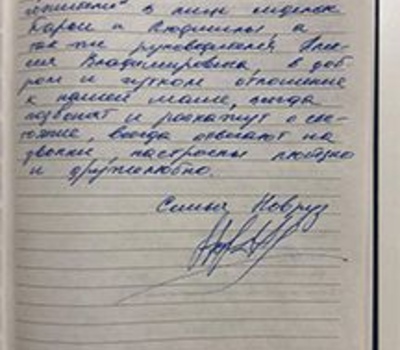 в лице сиделок
Барон и Людмилы, а
так же руководителя Але-
сия Владимировна, в доб-
ром и чутком отношение
к нашей маме, всегда
позвонят и расскажут о сос-
тояние, всегда отвечают на
звонки, настроены любезно
и дружелюбно.
Семья Новруз